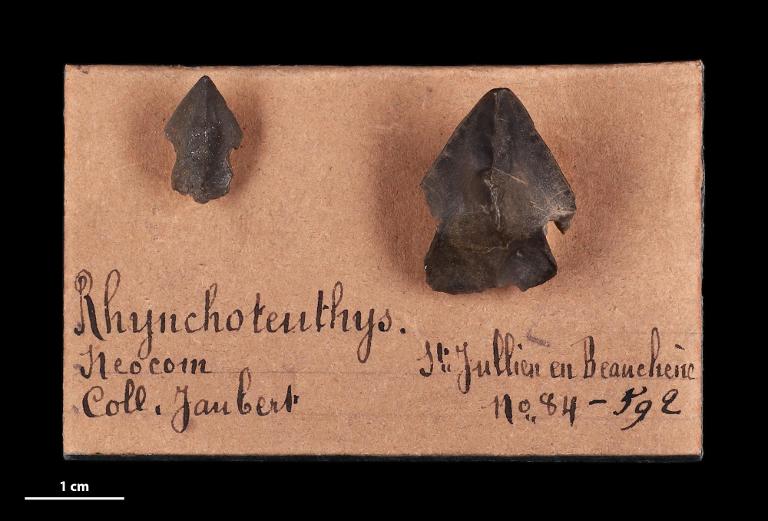 Rhynchoteuthys.
Neocom
Coll. Jaubert
St. Jullien en Beauchêne
No. 84 - 592
1 cm